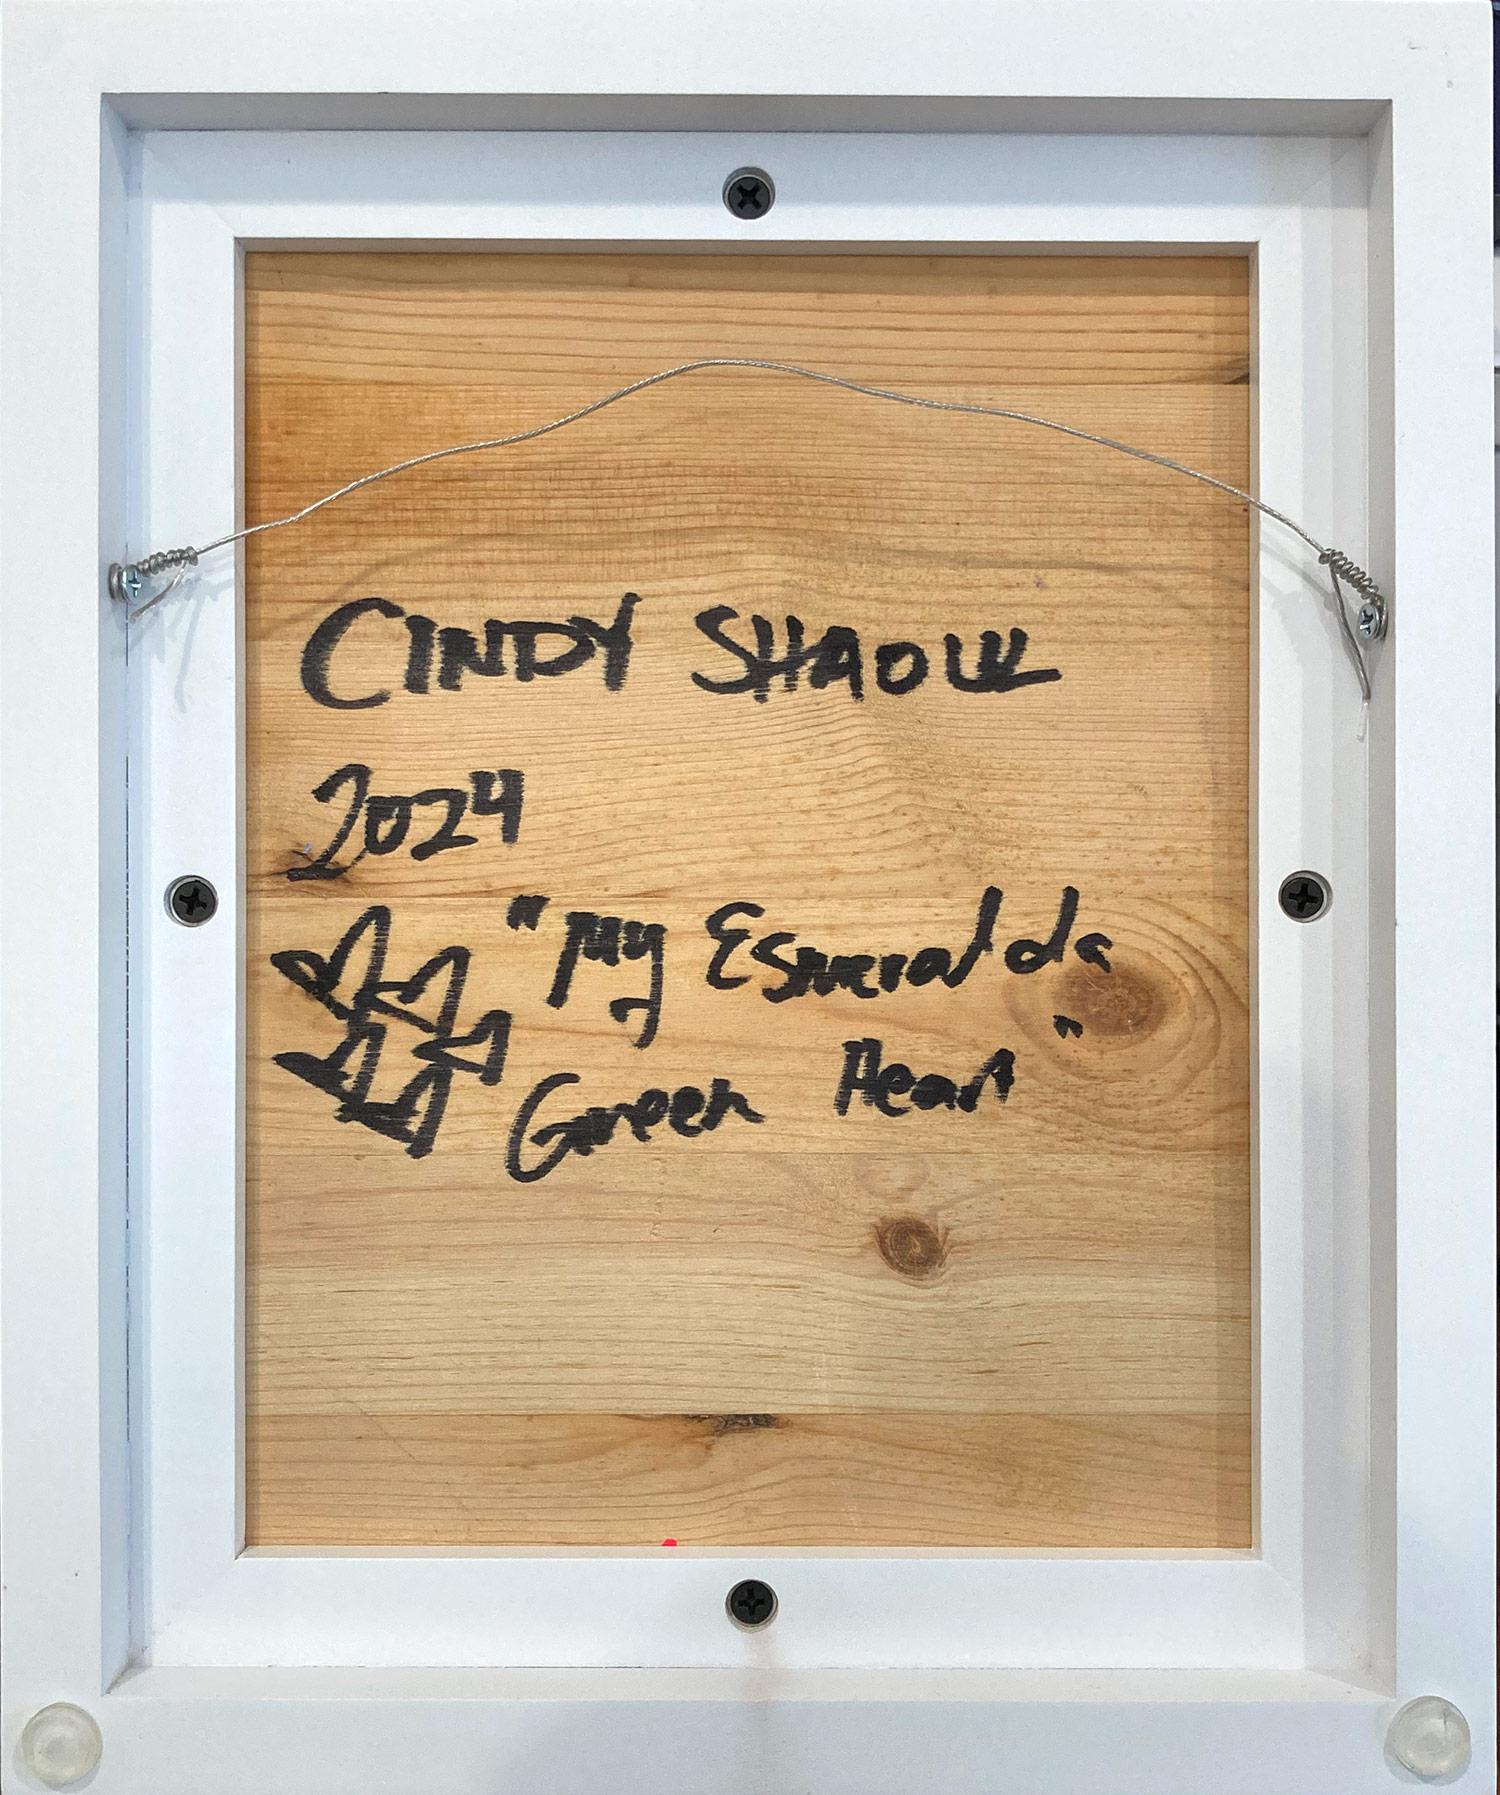 CINDY SHAOUL
2024
"My Esmeralda
Green Heart"